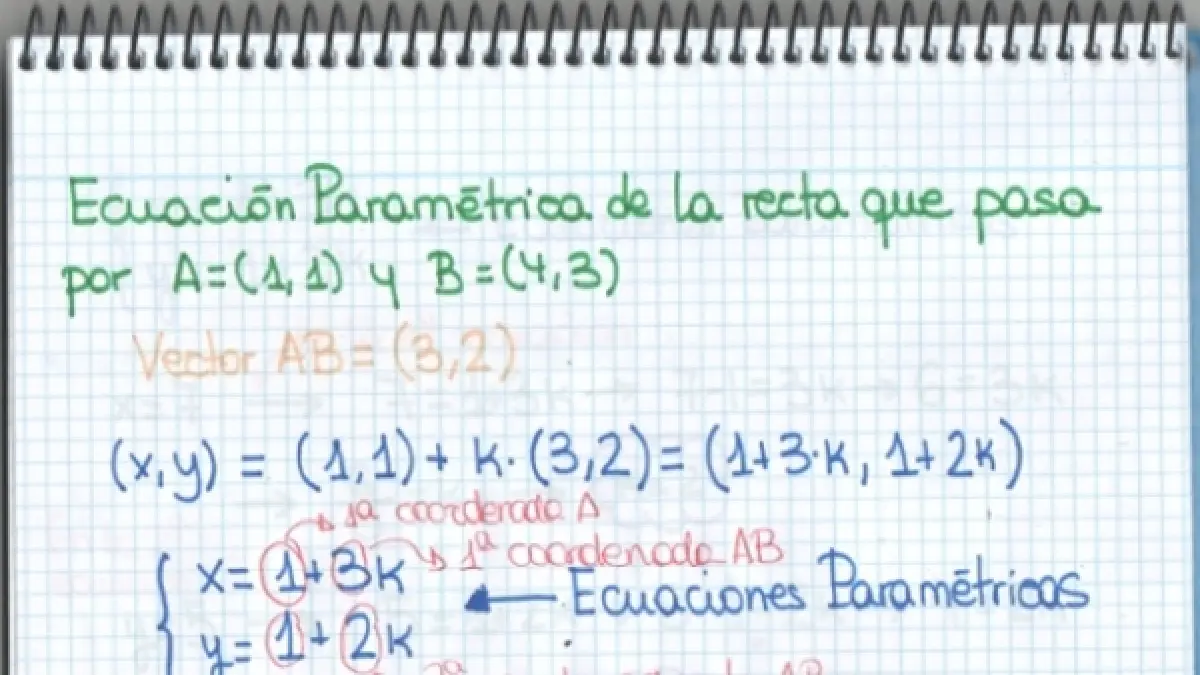 Ecuación Paramétrica de la recta que pasa
por A=(1,1) y B=(4,3)
Vector AB=(3,2)
(x,y) = (1,1)+ k·(3,2)= (1+3·k, 1+2k)
1ª coordenada A
x= 1+3k
1ª coordenada AB
Ecuaciones Paramétricas
y= 1+2k